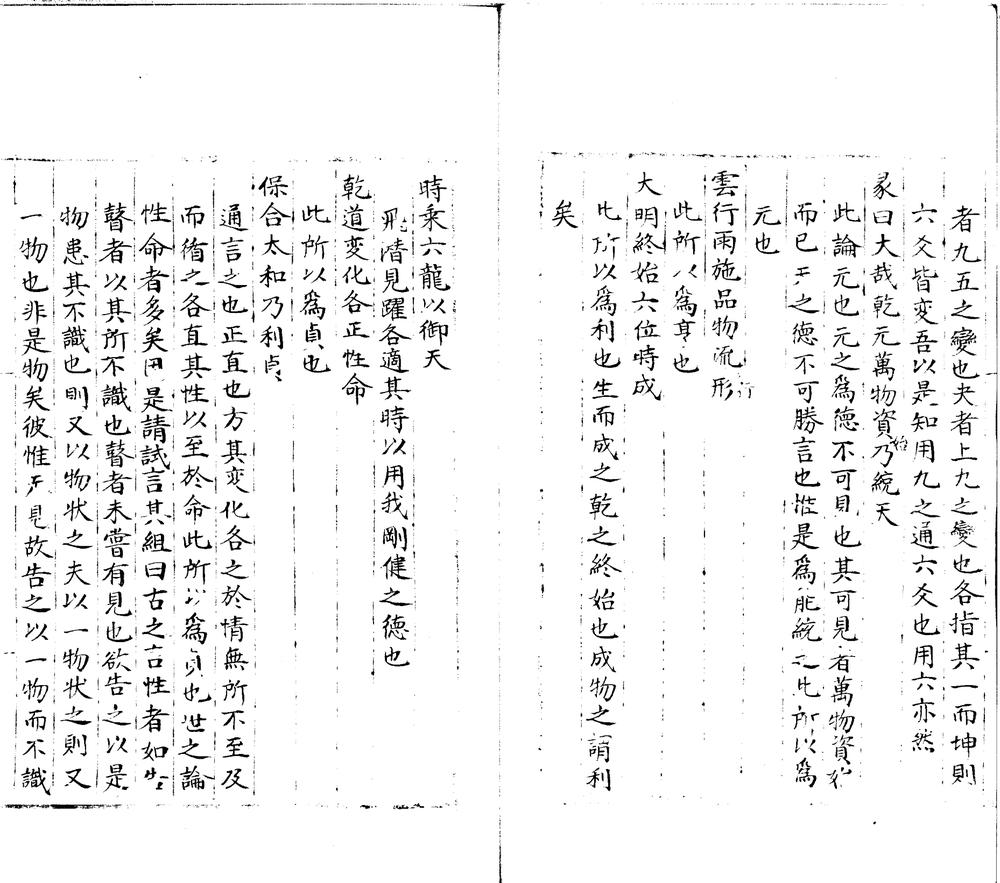 者九五之變也夬者上九之變也各指其一而坤則
六爻皆変吾以是知用九之通六爻也用六亦然
彖曰大哉乾元萬物資始乃統天
此論元也元之為德不可見也其可見者萬物資始
而已天之德不可勝言也惟是為能統之此所以為
元也
雲行雨施品物流形
此所以為亨也
大明終始六位時成
此所以為利也生而成之乾之終始也成物之謂利
矣
時乗六龍以御天
飛潛見躍各適其時以用我剛健之德也
乾道变化各正性命
此所以為貞也
保合太和乃利貞
通言之也正直也方其变化各之於情無所不至及
而循之各直其性以至於命此所以為貞也世之論
性命者多矣因是請試言其組曰古之言性者如告
瞽者以其所不識也瞽者未嘗有見也欲告之以是
物患其不識也則又以物状之夫以一物状之則又
一物也非是物矣彼惟无見故告之以一物而不識